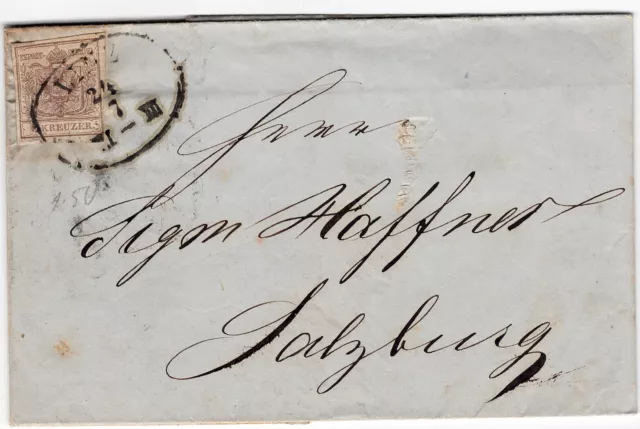 KREUZER
24
7
Herrn
Sigm Haffner
Salzburg